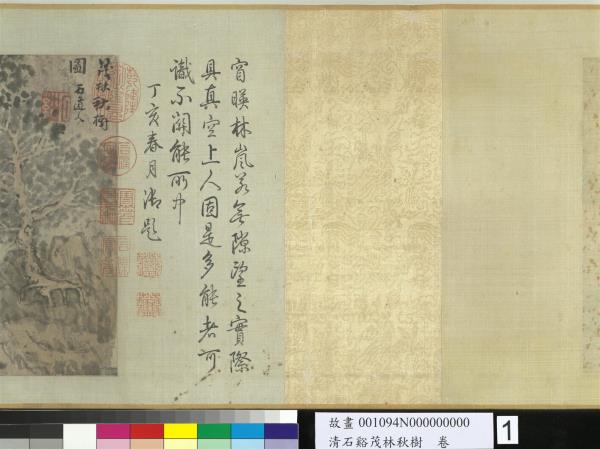 窅暎林嵐若無隙望之實際
具真空上人固是多能者可
識不關能所中
丁亥春月御題
茂林秋樹
圖
石道人
故畫 001094N000000000
清石谿茂林秋樹 卷
1